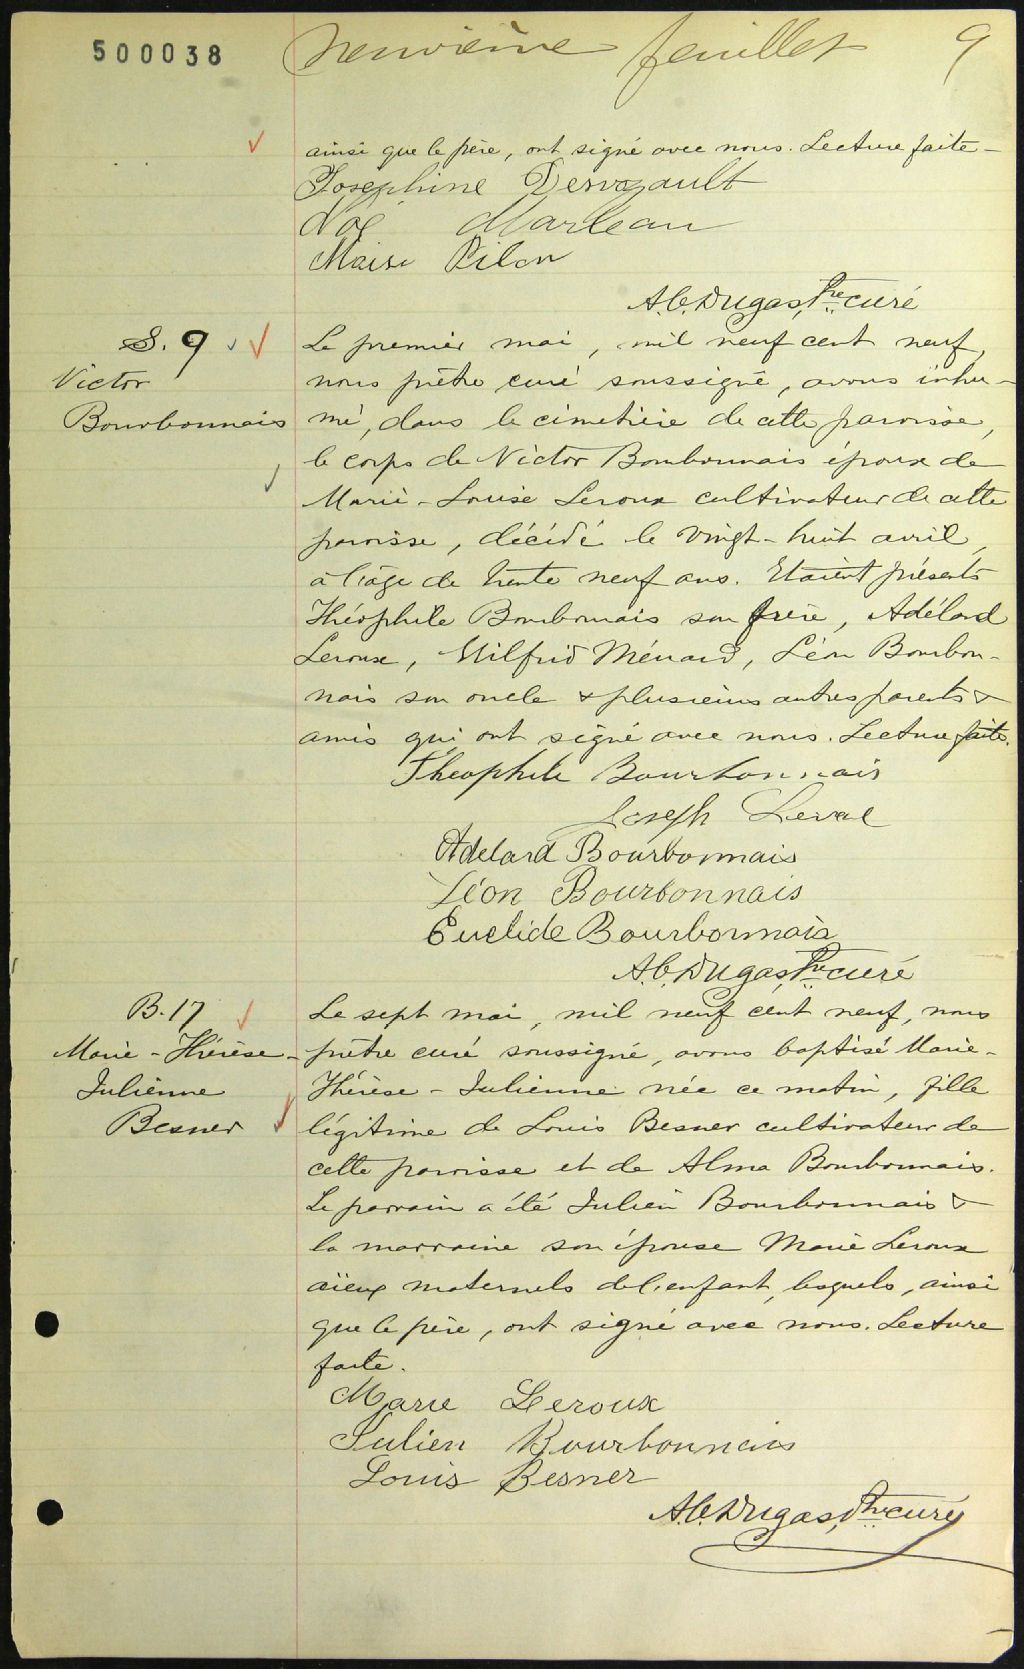 500038
neuvième feuillet 9
ainsi que le père, ont signé avec nous. Lecture faite -
Josephine
Noé Marleau
Pilon
A.C. Dugas, Ptre curé
S. 9
Victor
Bourbonnais
Le premier mai, mil neuf cent neuf,
nous prêtre curé soussigné, avons inhu-
mé, dans le cimetière de cette paroisse,
le corps de Victor Bourbonnais époux de
Marie-Louise Leroux cultivateur de cette
paroisse, décédé le vingt-huit avril,
à l'âge de trente neuf ans. Etaient présents
Théophile Bourbonnais son frère, Adélard
Leroux, Wilfrid Ménard, Léon Bourbon-
nais son oncle & plusieurs autres parents &
amis qui ont signé avec nous. Lecture faite.
Theophile Bourbonnais
Joseph
Adelard Bourbonnais
Léon Bourbonnais
Euclide Bourbonnais
A.C. Dugas, Ptre curé
B. 17
Marie-Thérèse-
Julienne
Besner
Le sept mai, mil neuf cent neuf, nous
prêtre curé soussigné, avons baptisé Marie-
Thérèse-Julienne née ce matin, fille
légitime de Louis Besner cultivateur de
cette paroisse et de Alma Bourbonnais.
Le parrain a été Julien Bourbonnais &
la marraine son épouse Marie Leroux
aïeux maternels de l'enfant, lesquels, ainsi
que le père, ont signé avec nous. Lecture
faite.
Marie Leroux
Julien Bourbonnais
Louis Besner
A.C. Dugas, Ptre curé